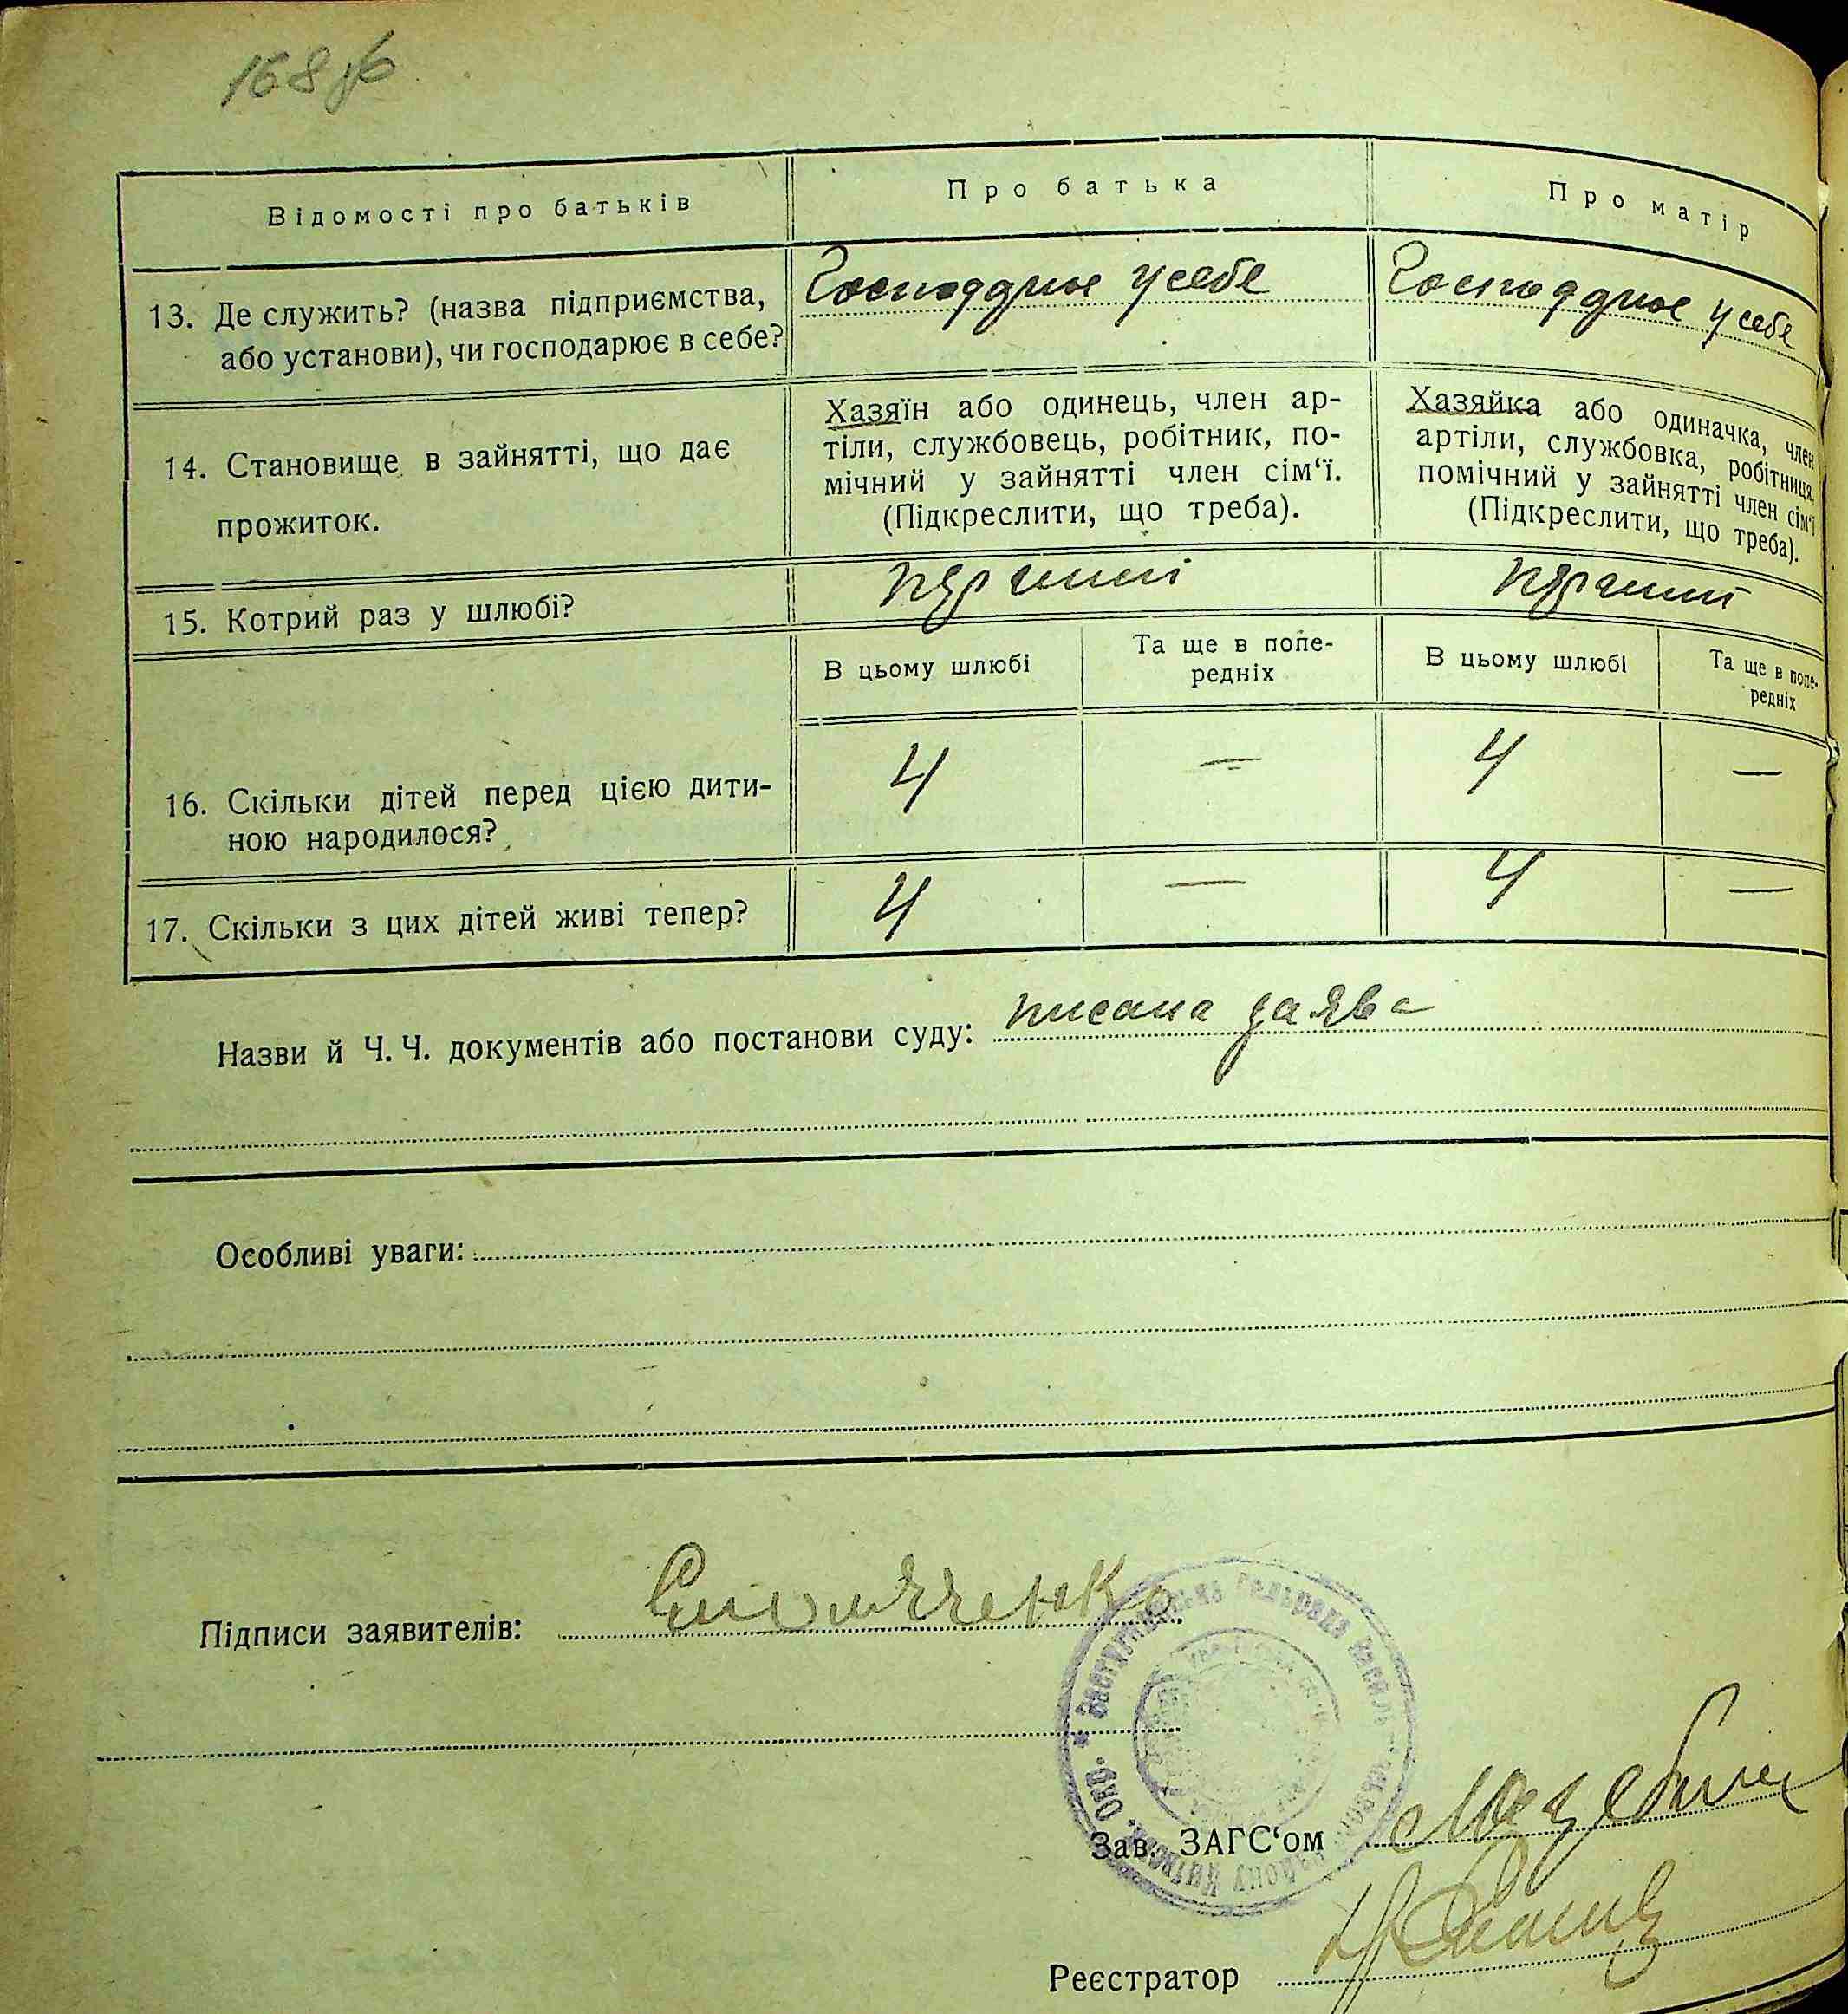 168 зв
Відомості про батьків
Про батька
Про матір
13. Де служить? (назва підприємства,
або установи), чи господарює в себе?
Господарює у себе
Господарює у себе
14. Становище в зайнятті, що дає
прожиток.
Хазяїн або одинець, член ар-
тіли, службовець, робітник, по-
мічний у зайнятті член сім‘ї.
(Підкреслити, що треба).
Хазяйка або одиначка, член
артіли, службовка, робітниця,
помічний у зайнятті член сім‘ї
(Підкреслити, що треба).
15. Котрий раз у шлюбі?
перший
перший
В цьому шлюбі
Та ще в попе-
редніх
В цьому шлюбі
Та ще в попе-
редніх
16. Скільки дітей перед цією дити-
ною народилося?
4
—
4
—
17. Скільки з цих дітей живі тепер?
4
—
4
—
Назви й Ч. Ч. документів або постанови суду: писана заява
Особливі уваги:
Підписи заявителів:
Зав. ЗАГС‘ом
Реєстратор